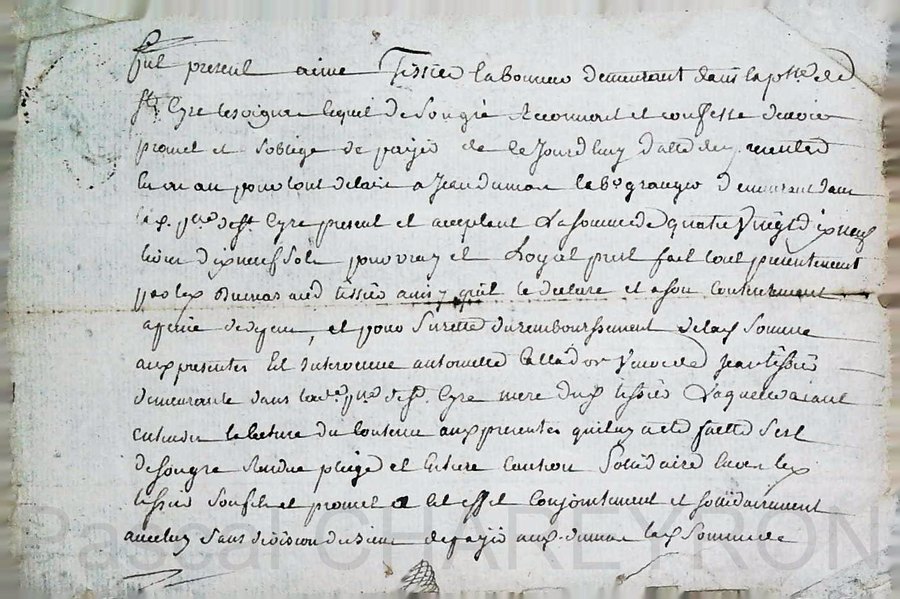 fut present aimé Tissier laboureur demeurant dans la psse de
st Cyre lequel de son gré Reconnoit et confesse devoir
promet et soblige de payer de ce Jourdhuy datte des presentes
en un an pour tout delaix a Jean dumas labr granger demeurant dans
lad. psse de st. Cyre present et acceptant La somme de quatre Vingt dix neuf
livres dix neuf sols pour vray et Loyal prest fait tout presentement
par led Dumas aud tissier ainsy quil le declare et a son contentement
a peine de depens, et pour suretté du remboursement de lad somme
aux presentes Est Intervenue antoinette Vuve de Jean tissier
demeurante dans lade. psse de st. Cyre mere dud tissier Laquelle aiant
entendu la lecture du Contenu aux presentes quil luy a eté faitte sest
de son gre Rendue pleige et Entiere Caution Solidaire Envers led
tissier son fils et promet a cet effet Conjointement et solidairement
avec luy Sans division de payer aud. dumas lad Somme de
Pascal CHAREYRON